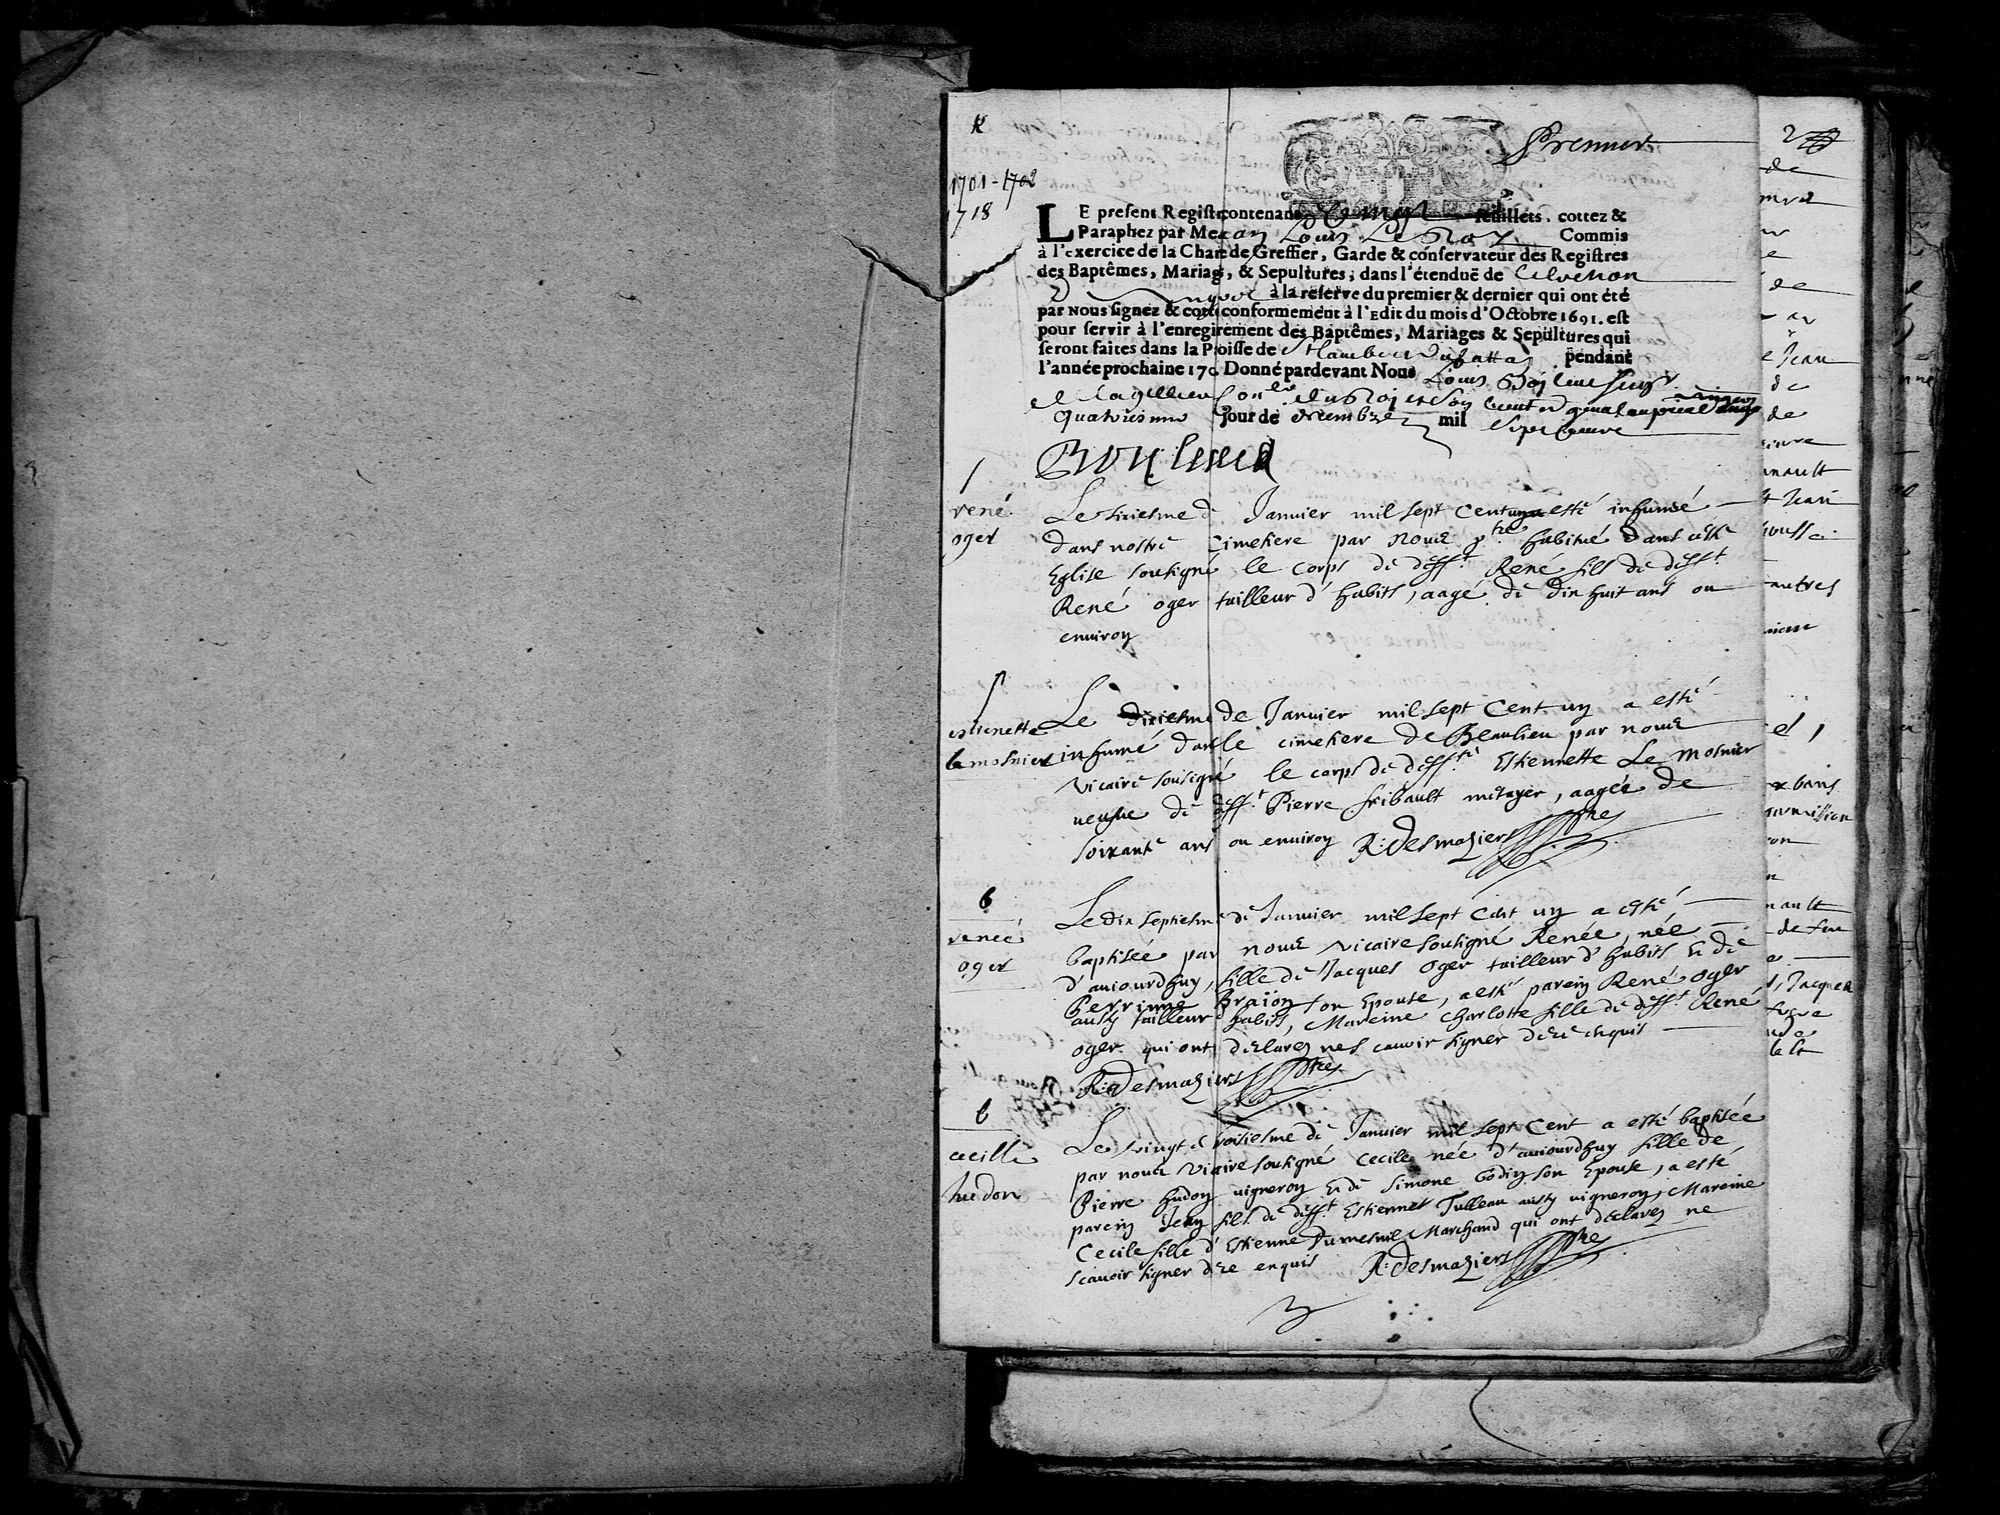 Premier
1701-1702
1718
LE present Registre contenant feuillets, cottez &
Paraphez par Me Louis Le Roy Commis
à l'exercice de la Charge de Greffier, Garde & conservateur des Registres
des Baptêmes, Mariages, & Sepultures, dans l'étenduë de
à la reserve du premier & dernier qui ont été
par Nous signez & cottez conformement à l'Edit du mois d'Octobre 1691. est
pour servir à l'enregistrement des Baptêmes, Mariages & Sepultures qui
seront faites dans la Paroisse de St Lambert du Lattay pendant
l'année prochaine 170 Donné pardevant Nous Louis
quatriesme jour de decembre mil sept
rené
oger
Le sixiesme de Janvier mil sept cent un a esté inhumé
dans nostre cimetiere par nous ptre habitué dans cette
Eglise soussigné le corps de defft René fils de defft
René oger tailleur d'habits, aagé de dix huit ans ou
environ
estienette
le mosnier
Le dixiesme de Janvier mil sept cent un a esté
inhumé dans le cimetiere de Beaulieu par nous
vicaire soussigné le corps de deffte Estiennette Le Mosnier
veufue de defft Pierre fribault metayer, aagée de
soixante ans ou environ R: Desmaziers ptre
b
renee
oger
Le dix septiesme de Janvier mil sept cent un a esté
baptisée par nous vicaire soussigné Renée, née
d'auiourdhuy, fille de Jacques Oger tailleur d'habits et de
Perrinne Braion son Epouse, a esté parein René oger
aussy tailleur d'habits, Mareine Charlotte fille de defft René
oger qui ont declarez ne scavoir signer de ce enquis
R: Desmaziers ptre
b
cecille
hudon
Le vingt troisiesme de Janvier mil sept cent a esté baptisée
par nous vicaire soussigné Cecile née d'auiourdhuy fille de
Pierre hudon vigneron et de Simone Godin son Epouse, a esté
parein Jean fils de defft Estiennes Tulleau aussy vigneron, Mareine
Cecile fille d'Estienne Dumesnil Marchand qui ont declarez ne
scavoir signer de ce enquis R: Desmaziers ptre